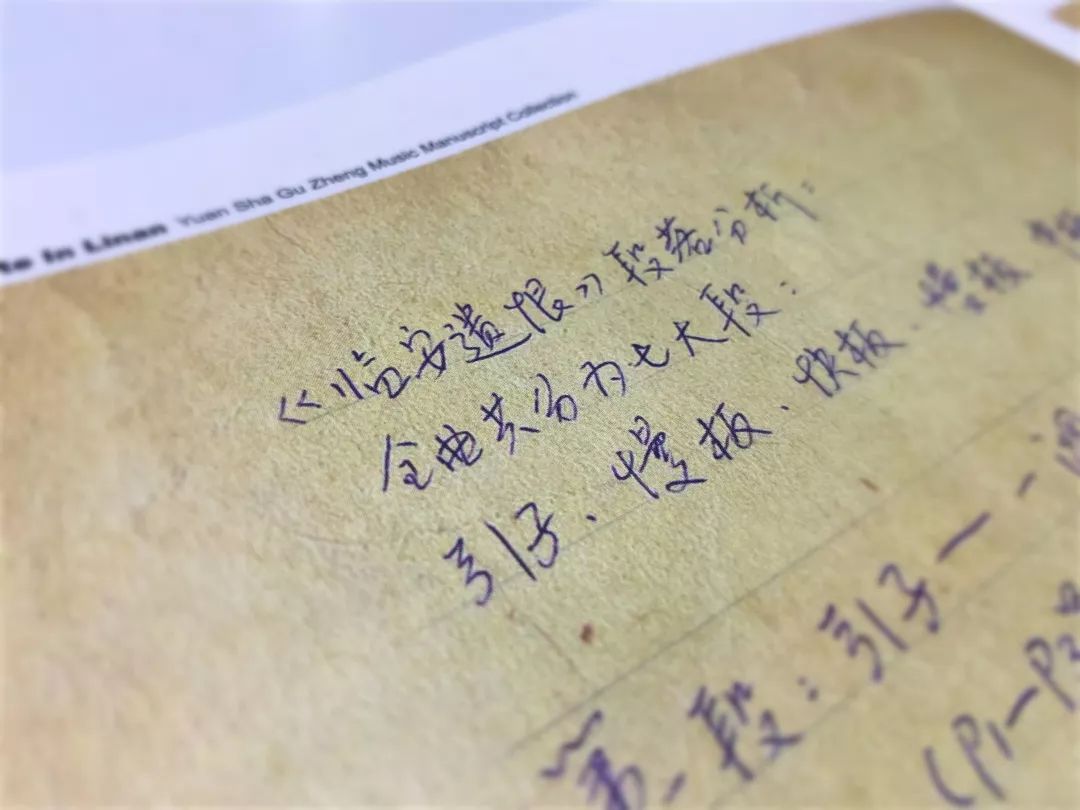 te in Linan Yuan Sha Gu Zheng Music Manuscript Collection
《临安遗恨》段落分析:
全曲共分为七大段:
引子、慢板、快板、慢板
第一段:引子 — -
(P1—P3